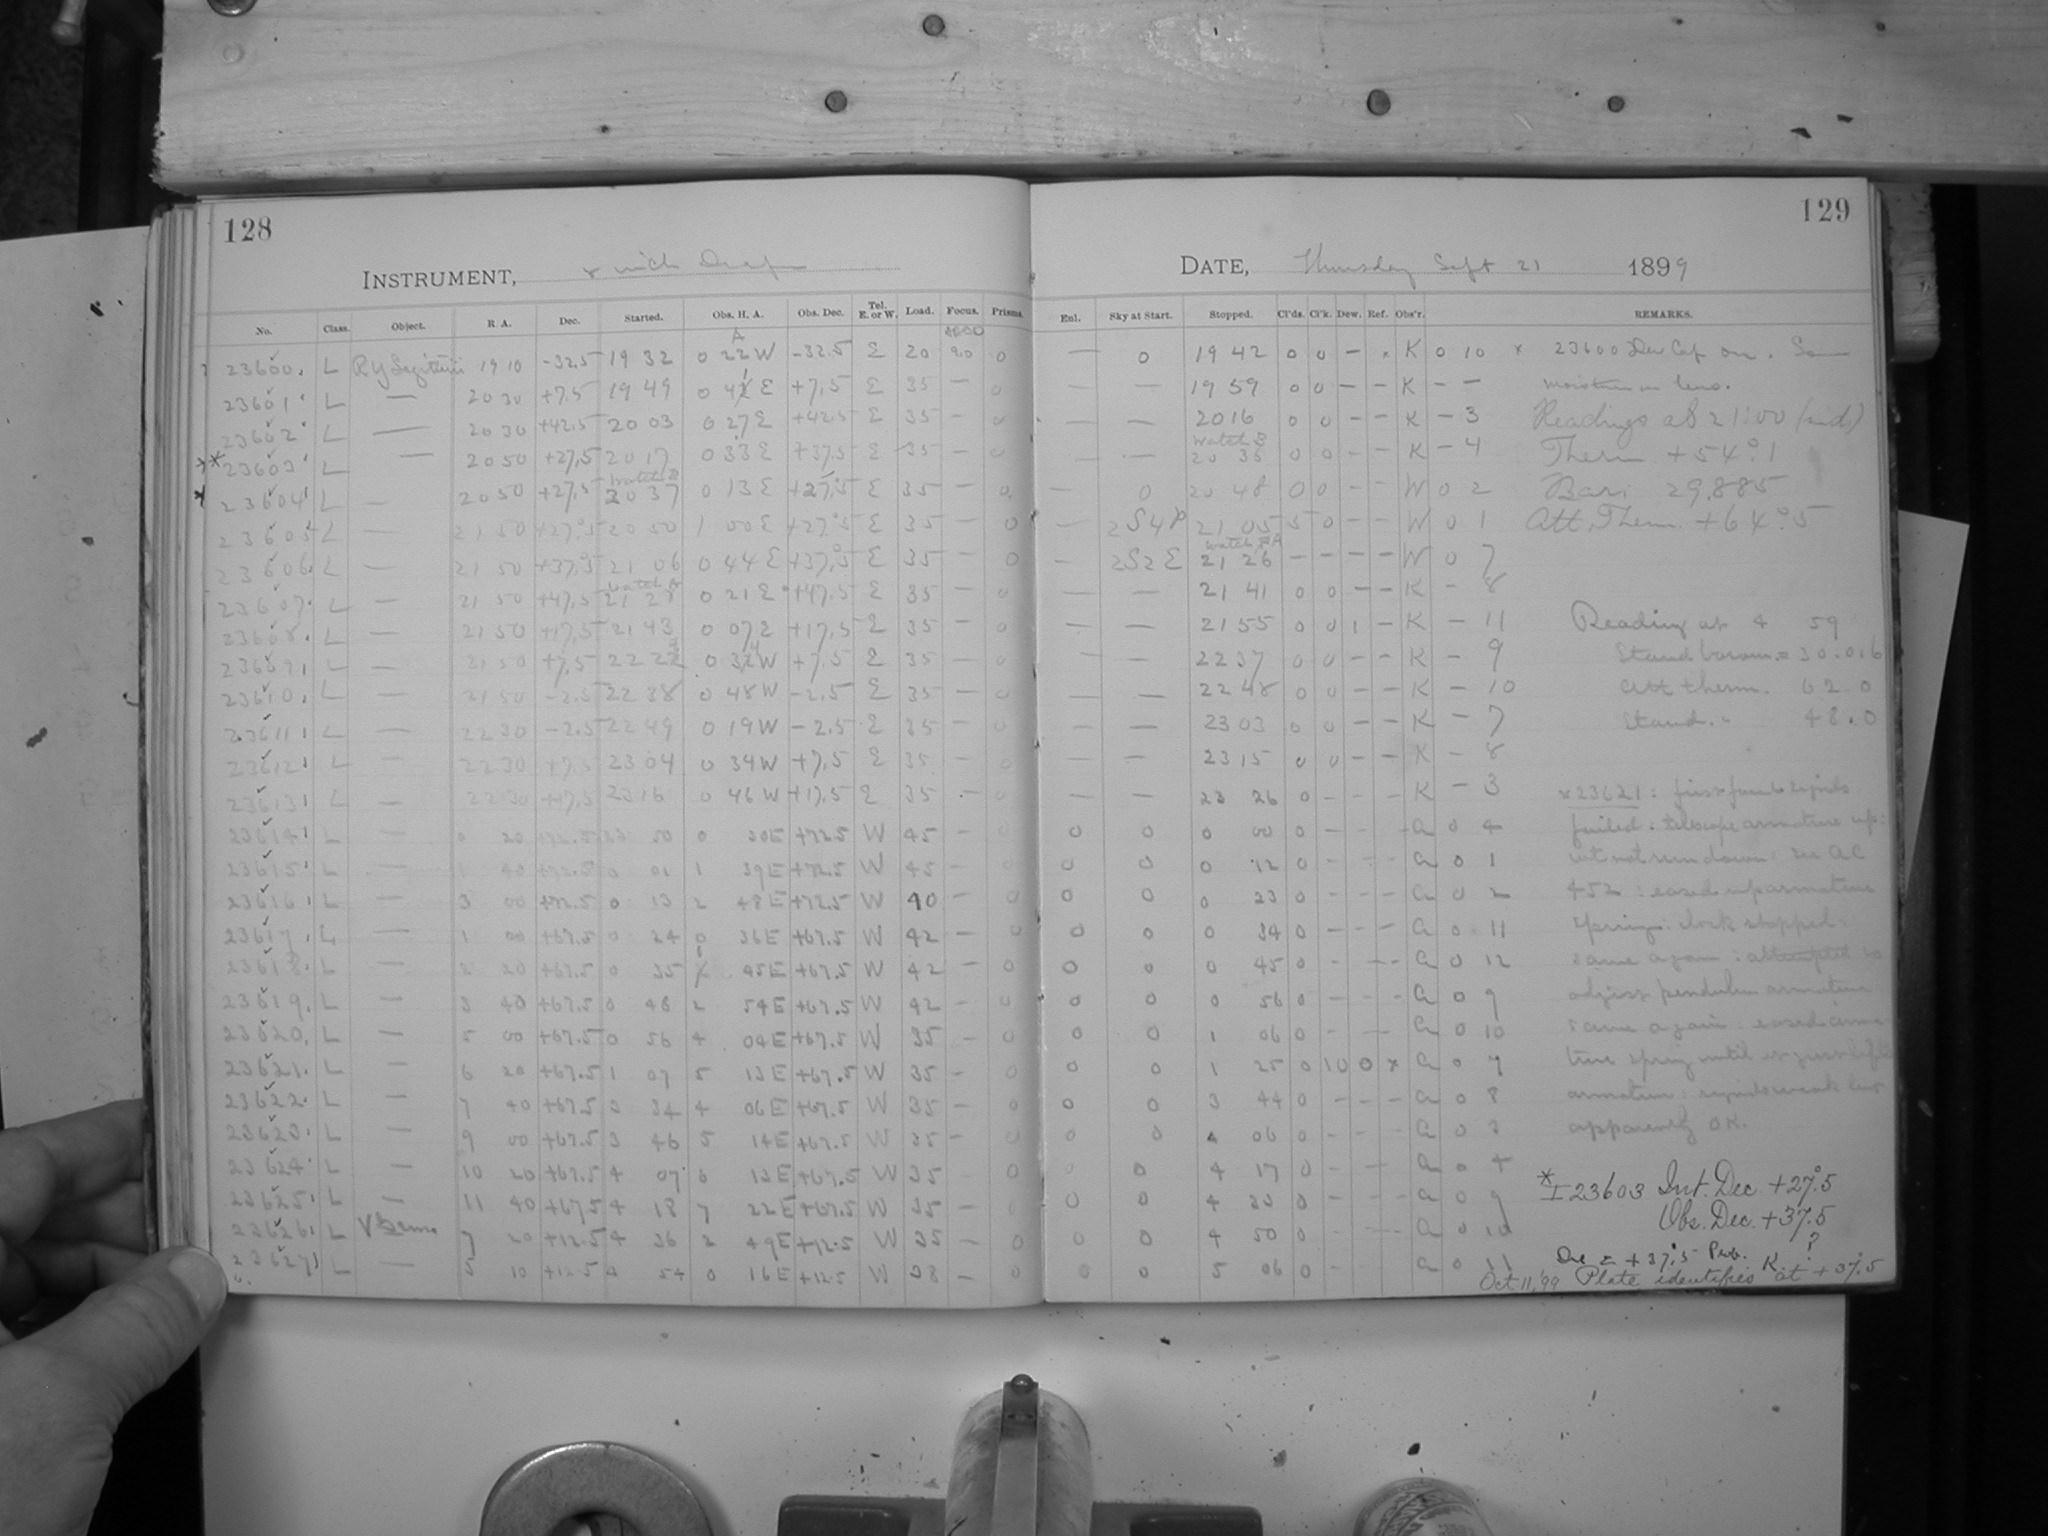 128
INSTRUMENT,
No. Class. Object. R. A. Dec. Started. Obs. H. A. Obs. Dec. Tel. E. or W. Load. Focus. Prisms.
23600. L RY Sagittarii 19 10 -32.5 19 32 0 22 W -32.5 E 20 9.0 0
23601 L — 20 30 +7.5 19 49 0 41 E +7.5 E 35 — 0
23602 L — 20 30 +42.5 20 03 0 27 E +42.5 E 35 — 0
* 23603 L — 20 50 +27.5 20 17 0 33 E +37.5 E 35 — 0
23604 L — 20 50 +27.5 20 37 0 13 E +27.5 E 35 — 0
23605 L — 21 50 +27.5 20 50 1 00 E +27.5 E 35 — 0
23606 L — 21 50 +37.5 21 06 0 44 E +37.5 E 35 — 0
23607 L — 21 50 +47.5 21 28 0 21 E +47.5 E 35 — 0
23608 L — 21 50 +17.5 21 43 0 07 E +17.5 E 35 — 0
23609 L — 21 50 +7.5 22 22 0 34 W +7.5 E 35 — 0
23610 L — 21 50 -2.5 22 38 0 48 W -2.5 E 35 — 0
23611 L — 22 30 -2.5 22 49 0 19 W -2.5 E 35 — 0
23612 L — 22 30 +7.5 23 04 0 34 W +7.5 E 35 — 0
23613 L — 22 30 +17.5 23 16 0 46 W +17.5 E 35 — 0
23614 L — 0 20 +72.5 23 50 0 30 E +72.5 W 45 — 0
23615 L — 1 40 +72.5 0 01 1 39 E +72.5 W 45 — 0
23616 L — 3 00 +72.5 0 13 2 48 E +72.5 W 40 — 0
23617 L — 1 00 +67.5 0 24 0 36 E +67.5 W 42 — 0
23618 L — 2 20 +67.5 0 35 1 45 E +67.5 W 42 — 0
23619 L — 3 40 +67.5 0 48 2 54 E +67.5 W 42 — 0
23620 L — 5 00 +67.5 0 56 4 04 E +67.5 W 35 — 0
23621 L — 6 20 +67.5 1 07 5 13 E +67.5 W 35 — 0
23622 L — 7 40 +67.5 3 34 4 06 E +67.5 W 35 — 0
23623 L — 9 00 +67.5 3 46 5 14 E +67.5 W 35 — 0
23624 L — 10 20 +67.5 4 07 6 13 E +67.5 W 35 — 0
23625 L — 11 40 +67.5 4 18 7 22 E +67.5 W 35 — 0
23626 L 7 20 +12.5 4 36 2 49 E +12.5 W 35 — 0
23627 L — 5 10 +12.5 4 54 0 16 E +12.5 W 38 — 0
129
DATE, Thursday Sept 21 1899
Enl. Sky at Start. Stopped. Cl'ds. Cl'k. Dew. Ref. Obs'r. REMARKS.
— 0 19 42 0 0 — K 0 10 × 23600 Dew Cap on. Some
— — 19 59 0 0 — — K — — moisture on lens.
— — 20 16 0 0 — — K — 3 Readings at 21:00 (sid.)
watch B
— — 20 35 0 0 — — K — 4 Therm +54°.1
— 0 20 48 0 0 — — W 0 2 Bar. 29.885
— 2S4P 21 05 5 0 — — W 0 1 Att. Therm. +64°.5
— 2S2E 21 26 — — — — W 0 7
— — 21 41 0 0 — — K — 8
— — 21 55 0 0 1 — K — 11 Reading at 4 59
— — 22 37 0 0 — — K — 9 Stand barom. = 30.016
— — 22 48 0 0 — — K — 10 att therm. 62.0
— — 23 03 0 0 — — K — 7 Stand. " 48.0
— — 23 15 0 0 — — K — 8
— — 23 26 0 — — — K — 3 × 23621: first four rapids
0 0 0 00 0 — — — a 0 4 failed: telescope armature up:
0 0 0 12 0 — — — a 0 1 wt not run down: see AC
0 0 0 23 0 — — — a 0 2 452: eased up armature
0 0 0 34 0 — — — a 0 11 spring: clock stopped.
0 0 0 45 0 — — — a 0 12 same again: attempted to
0 0 0 56 0 — — — a 0 9 adjust pendulum armature
0 0 1 06 0 — — — a 0 10 same again: eased arma
0 0 1 25 0 10 0 × a 0 7 ture spring until it just lifts
0 0 3 44 0 — — — a 0 8 armature: rapids weak but
0 0 4 06 0 — — — a 0 3 apparently OK.
0 0 4 17 0 — — — a 0 4
0 0 4 33 0 — — — a 0 9 * I 23603 Int. Dec +27°.5
0 0 4 50 0 — — — a 0 10 Obs. Dec. +37.5
0 0 5 06 0 — — — a 0 11 Dec = +37°.5 Prob. K. ?
Oct 11, '99 Plate identifies at +37°.5